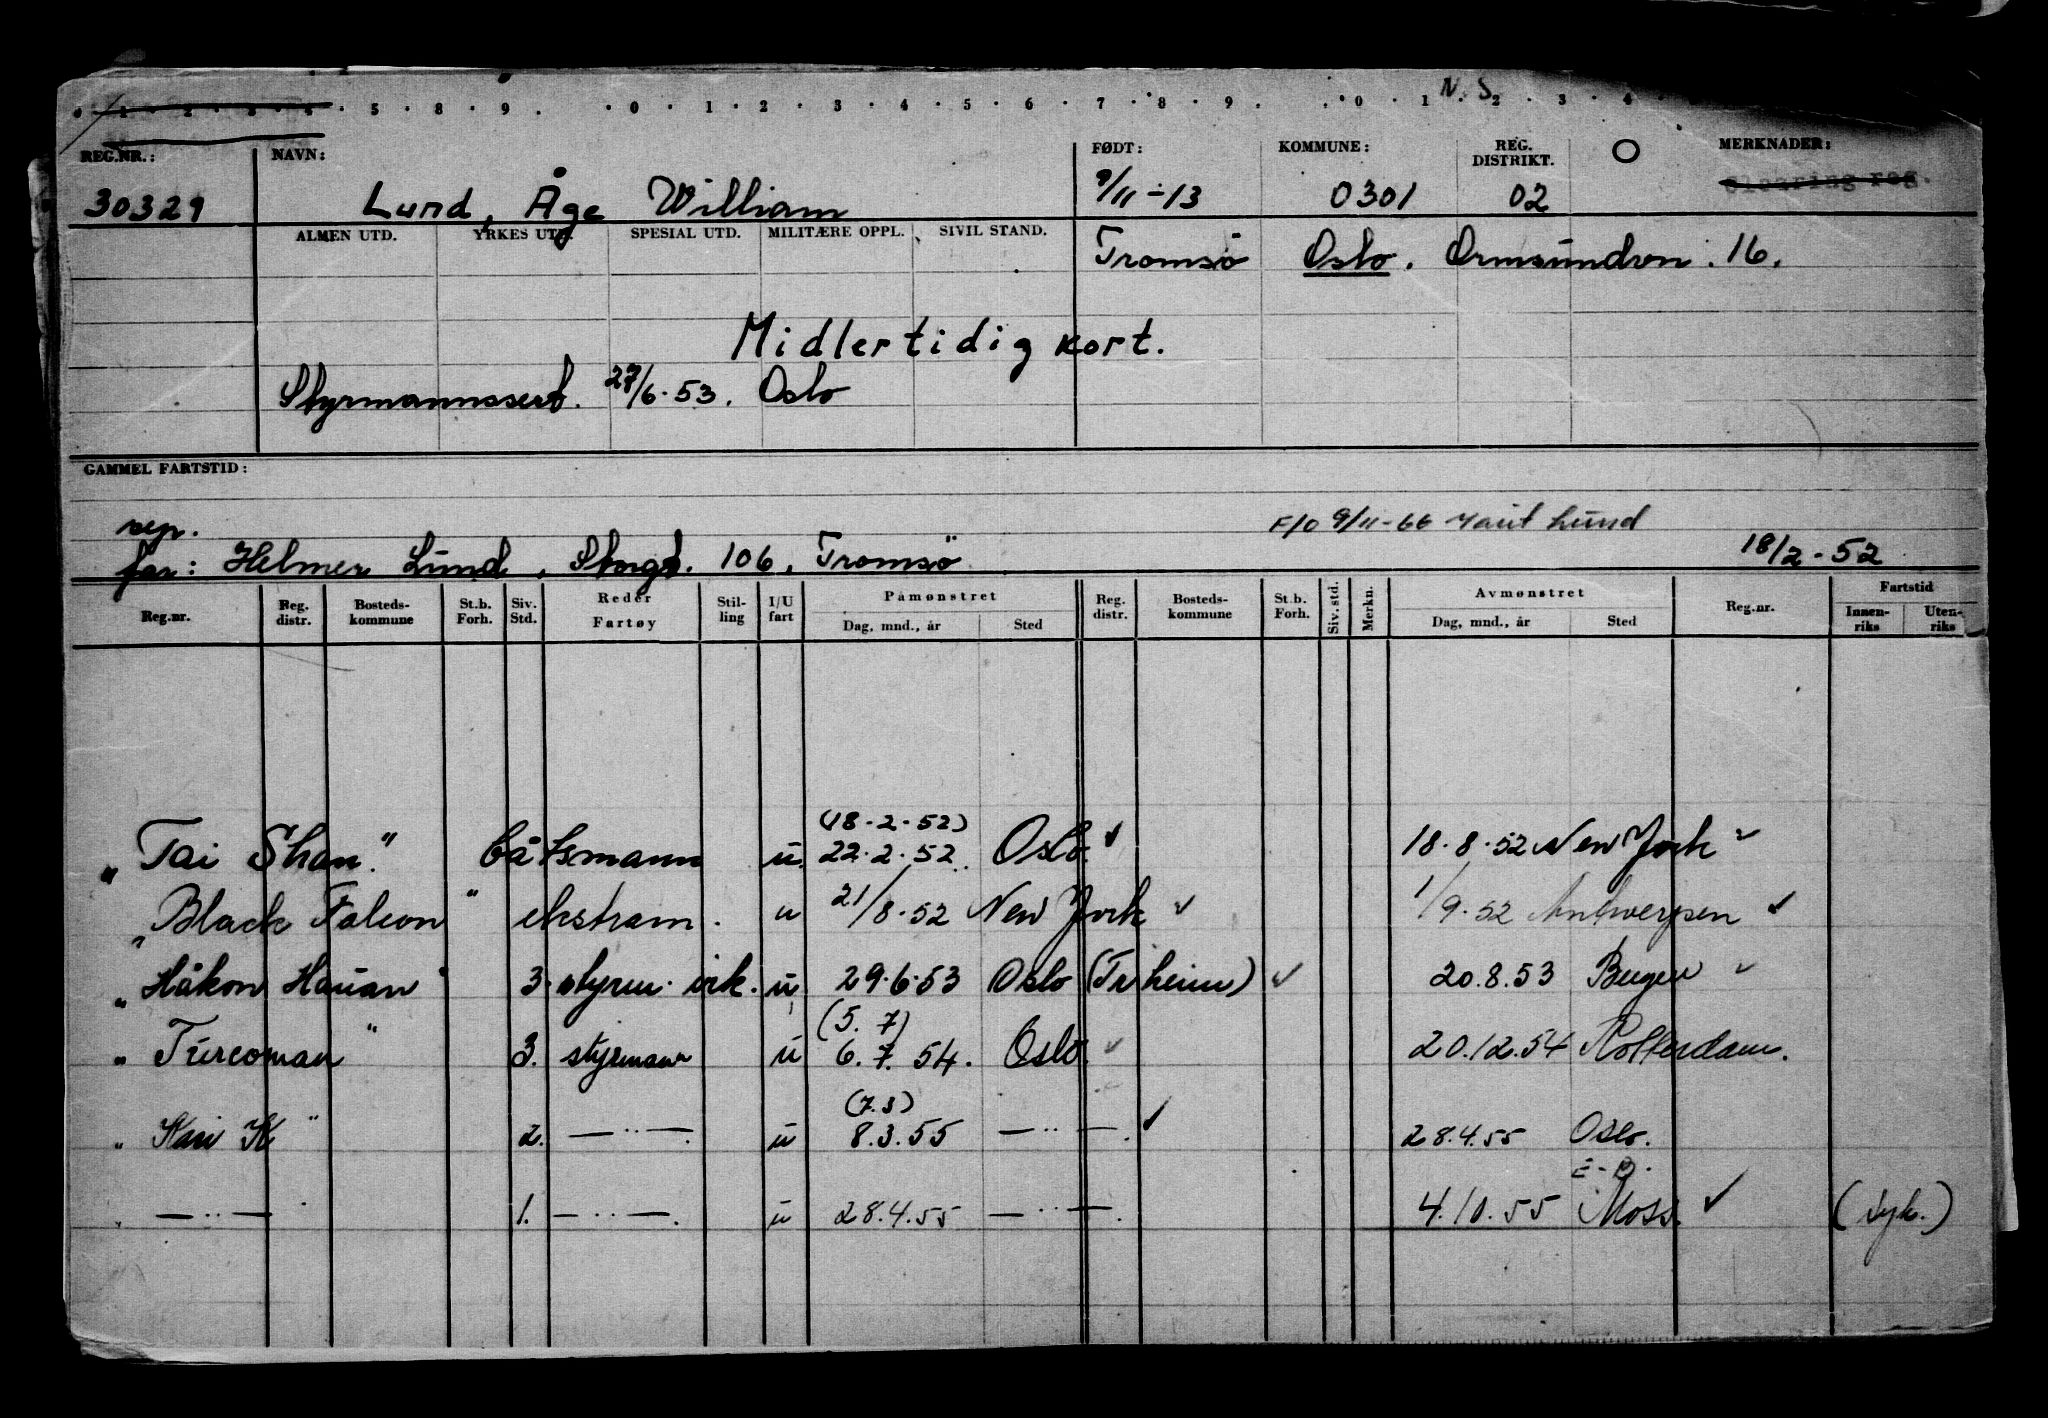 N. S.
0 · 1 · 2 · 3 · 4 · 5 · 8 · 9 . · 0 · 1 · 2 · 3 · 4 · 5 · 6 · 7 · 8 · 9 . · 0 · 1 · 2 · 3 · 4
REG.NR.: NAVN: FØDT: KOMMUNE: REG. DISTRIKT. O MERKNADER:
30329 Lund, Åge William 9/11-13 0301 02 Clearing reg.
ALMEN UTD. YRKES UTD. SPESIAL UTD. MILITÆRE OPPL. SIVIL STAND. Tromsö Oslo. Ormsundvn. 16.
Midlertidig kort.
Styrmannssert. 27/6.53. Oslo
GAMMEL FARTSTID:
rep. F/O 9/11-66 Lund
far: Helmer Lund, Storgt. 106, Tromsö 18/2-52
Reg.nr. Reg. distr. Bosteds-kommune St.b. Forh. Siv. Std. Reder Fartøy Stil-ling I/U fart Påmønstret Dag, mnd., år Sted Reg. distr. Bosteds-kommune St.b. Forh. Siv.std. Merkn. Avmønstret Dag, mnd., år Sted Reg.nr. Fartstid Innen-riks Uten-riks
(18.2.52)
"Tai Shan" båtsmann u. 22.2.52. Oslo. 18.8.52 New York
"Black Falcon" ekstram. u 21/8.52 New York 1/9.52 Antwerpen
"Håkon Hauan" 3. styrm. irk. u 29.6.53 Oslo (Tr.heim) 20.8.53 Bergen
(5.7)
"Turcoman" 3. styrmann u 6.7.54. Oslo. 20.12.54 Rotterdam.
(7.3)
"Kari K" 2. —"—. u 8.3.55 —"—. 28.4.55 Oslo.
" —"— 1. —"—. u 28.4.55 —"—. 4.10.55 Moss. (syk.)